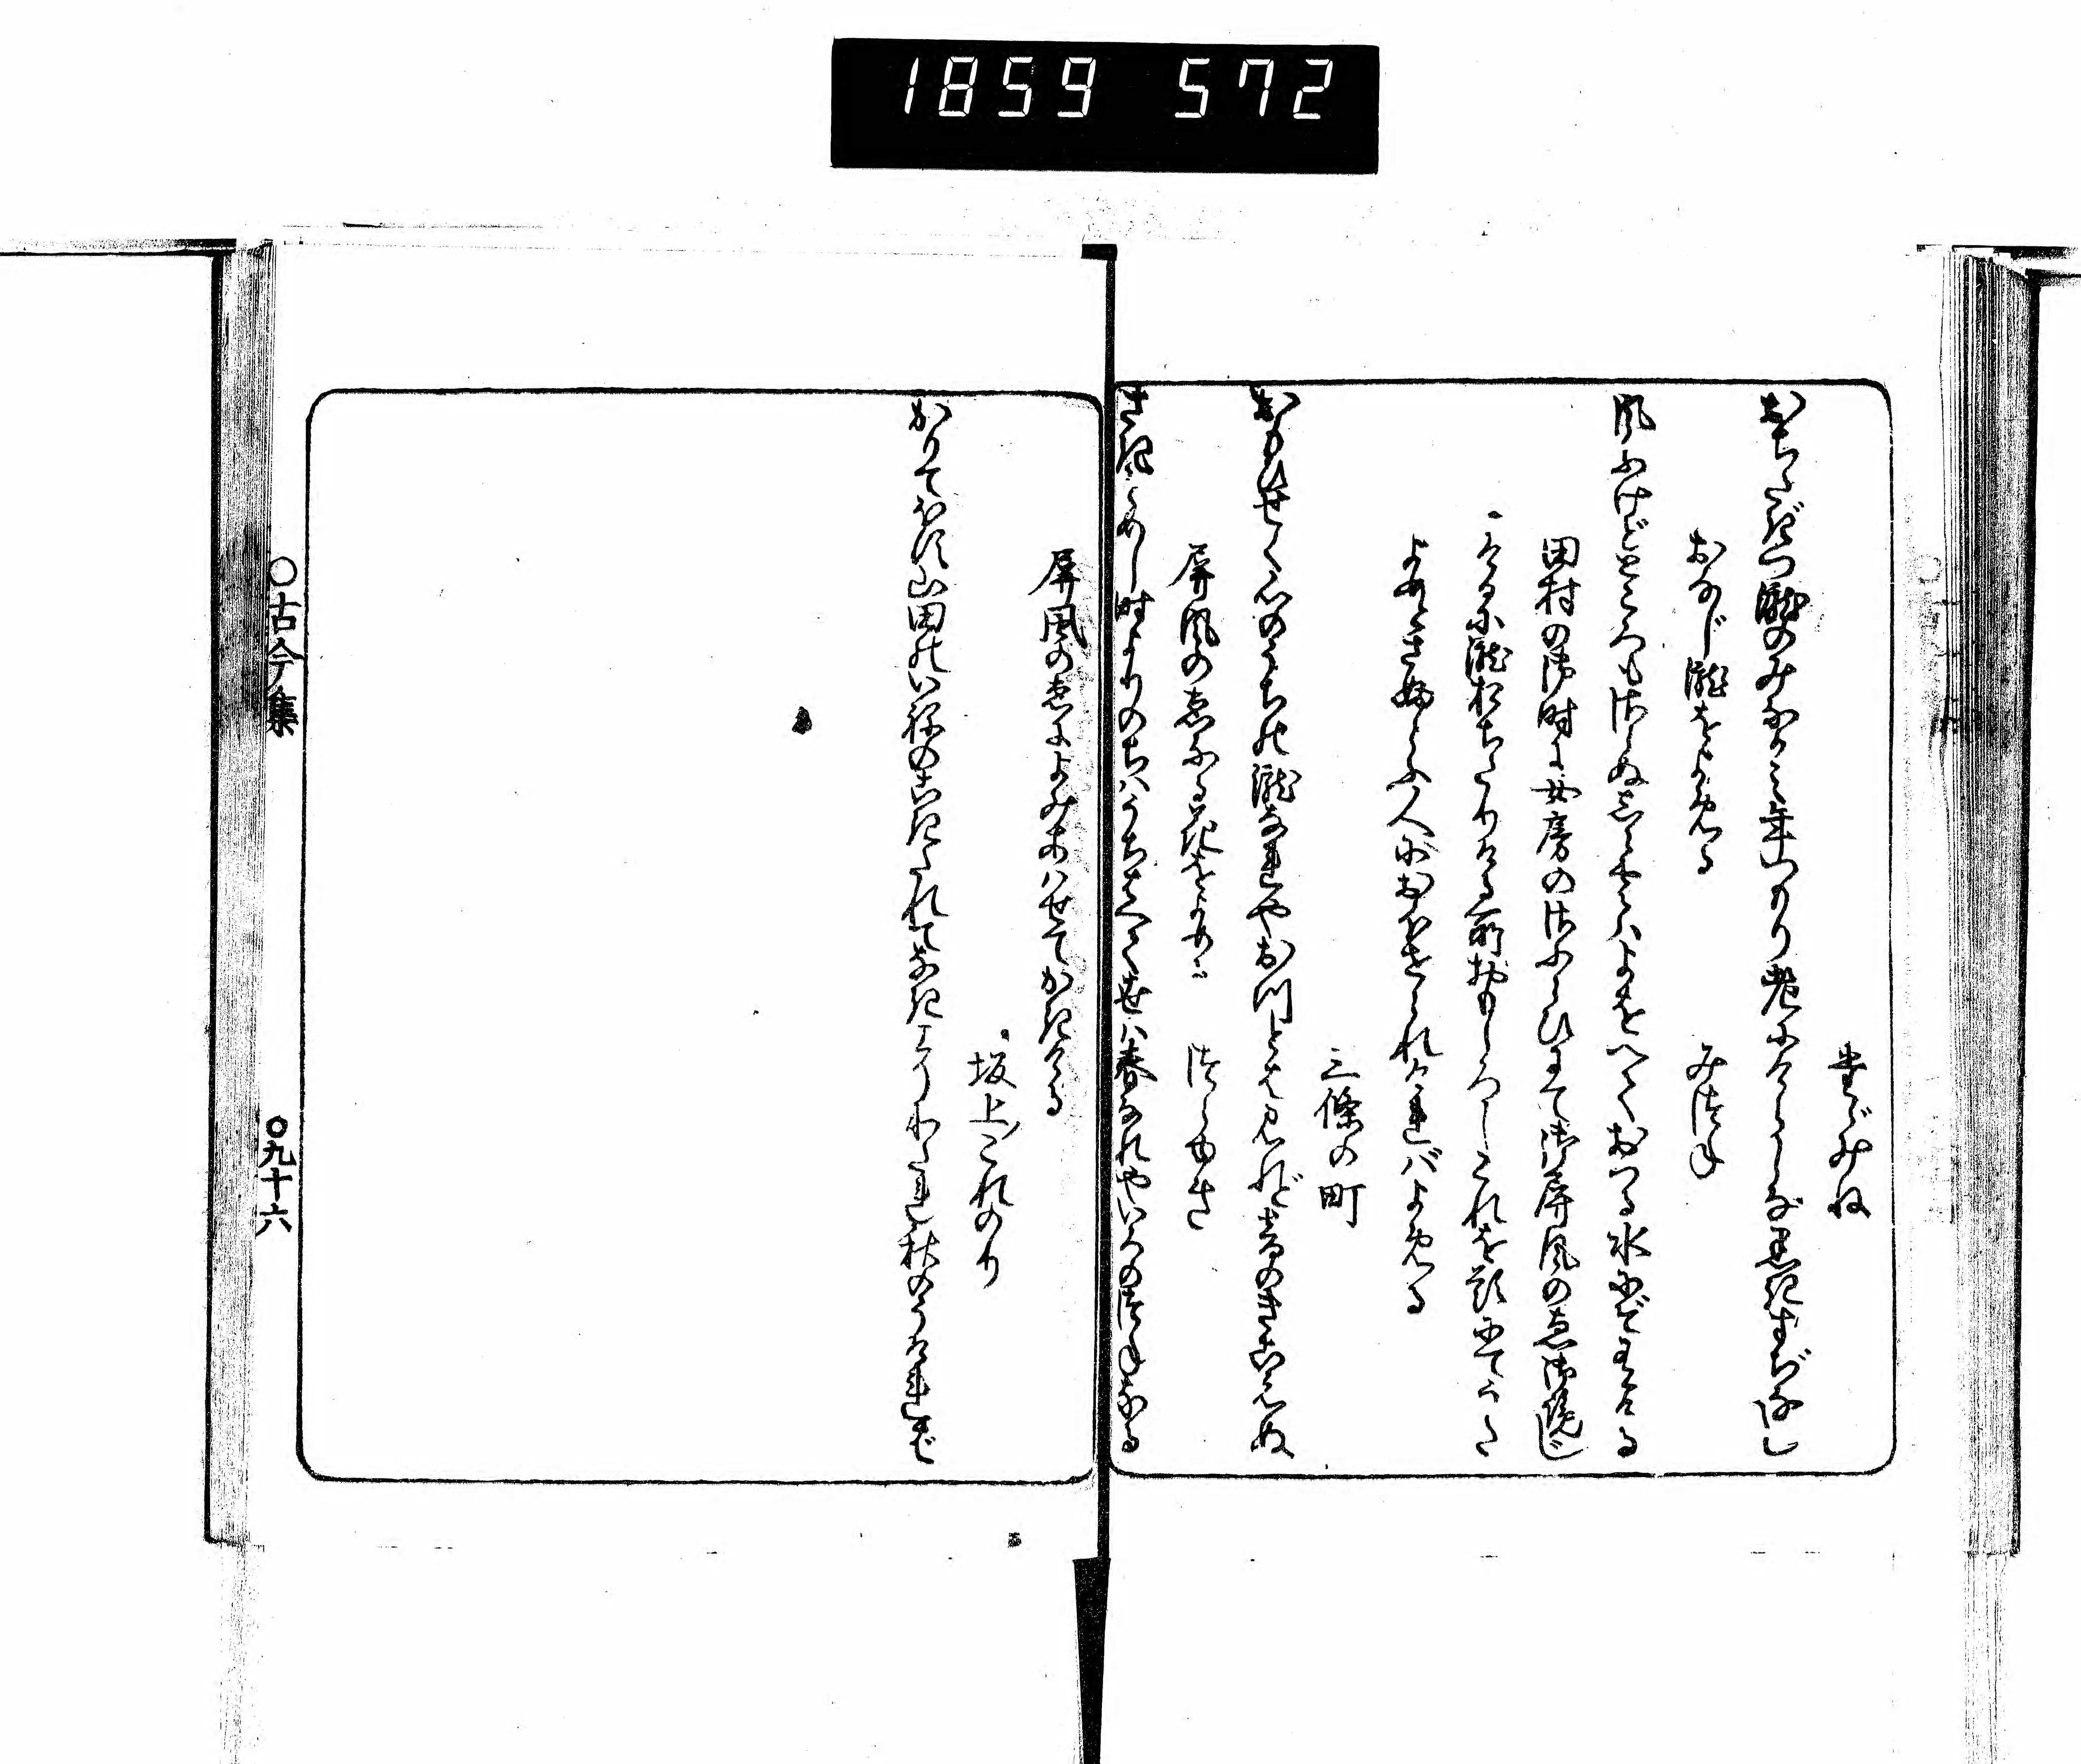 1859 572
たゞみね
おちたぎつ瀧のみなかみ年つもり老にけらしな黒きすぢなし
おなじ瀧をよめる
みつね
風ふけどところもさらぬしら雲はよをへておつる水にぞ有ける
田村の御時に女房のさふらひにて御屏風のゑ御覧じ
ける に瀧おちたりける所おもしろしこれを題にてうた
よめとさぶらふ人におほせられければよめる
三條の町
おもひせく心のうちの瀧なれやおつとは見れど音のきこえぬ
屏風のゑなる花をよめる
つらゆき
さきそめし時よりのちはうちはへて世は春なれやいろのつねなる
屏風のゑによみあはせてかきける
坂上これのり
かりてほす山田のいねのこきたれてなきこそわたれ秋のうければ
○古今集
○九十六